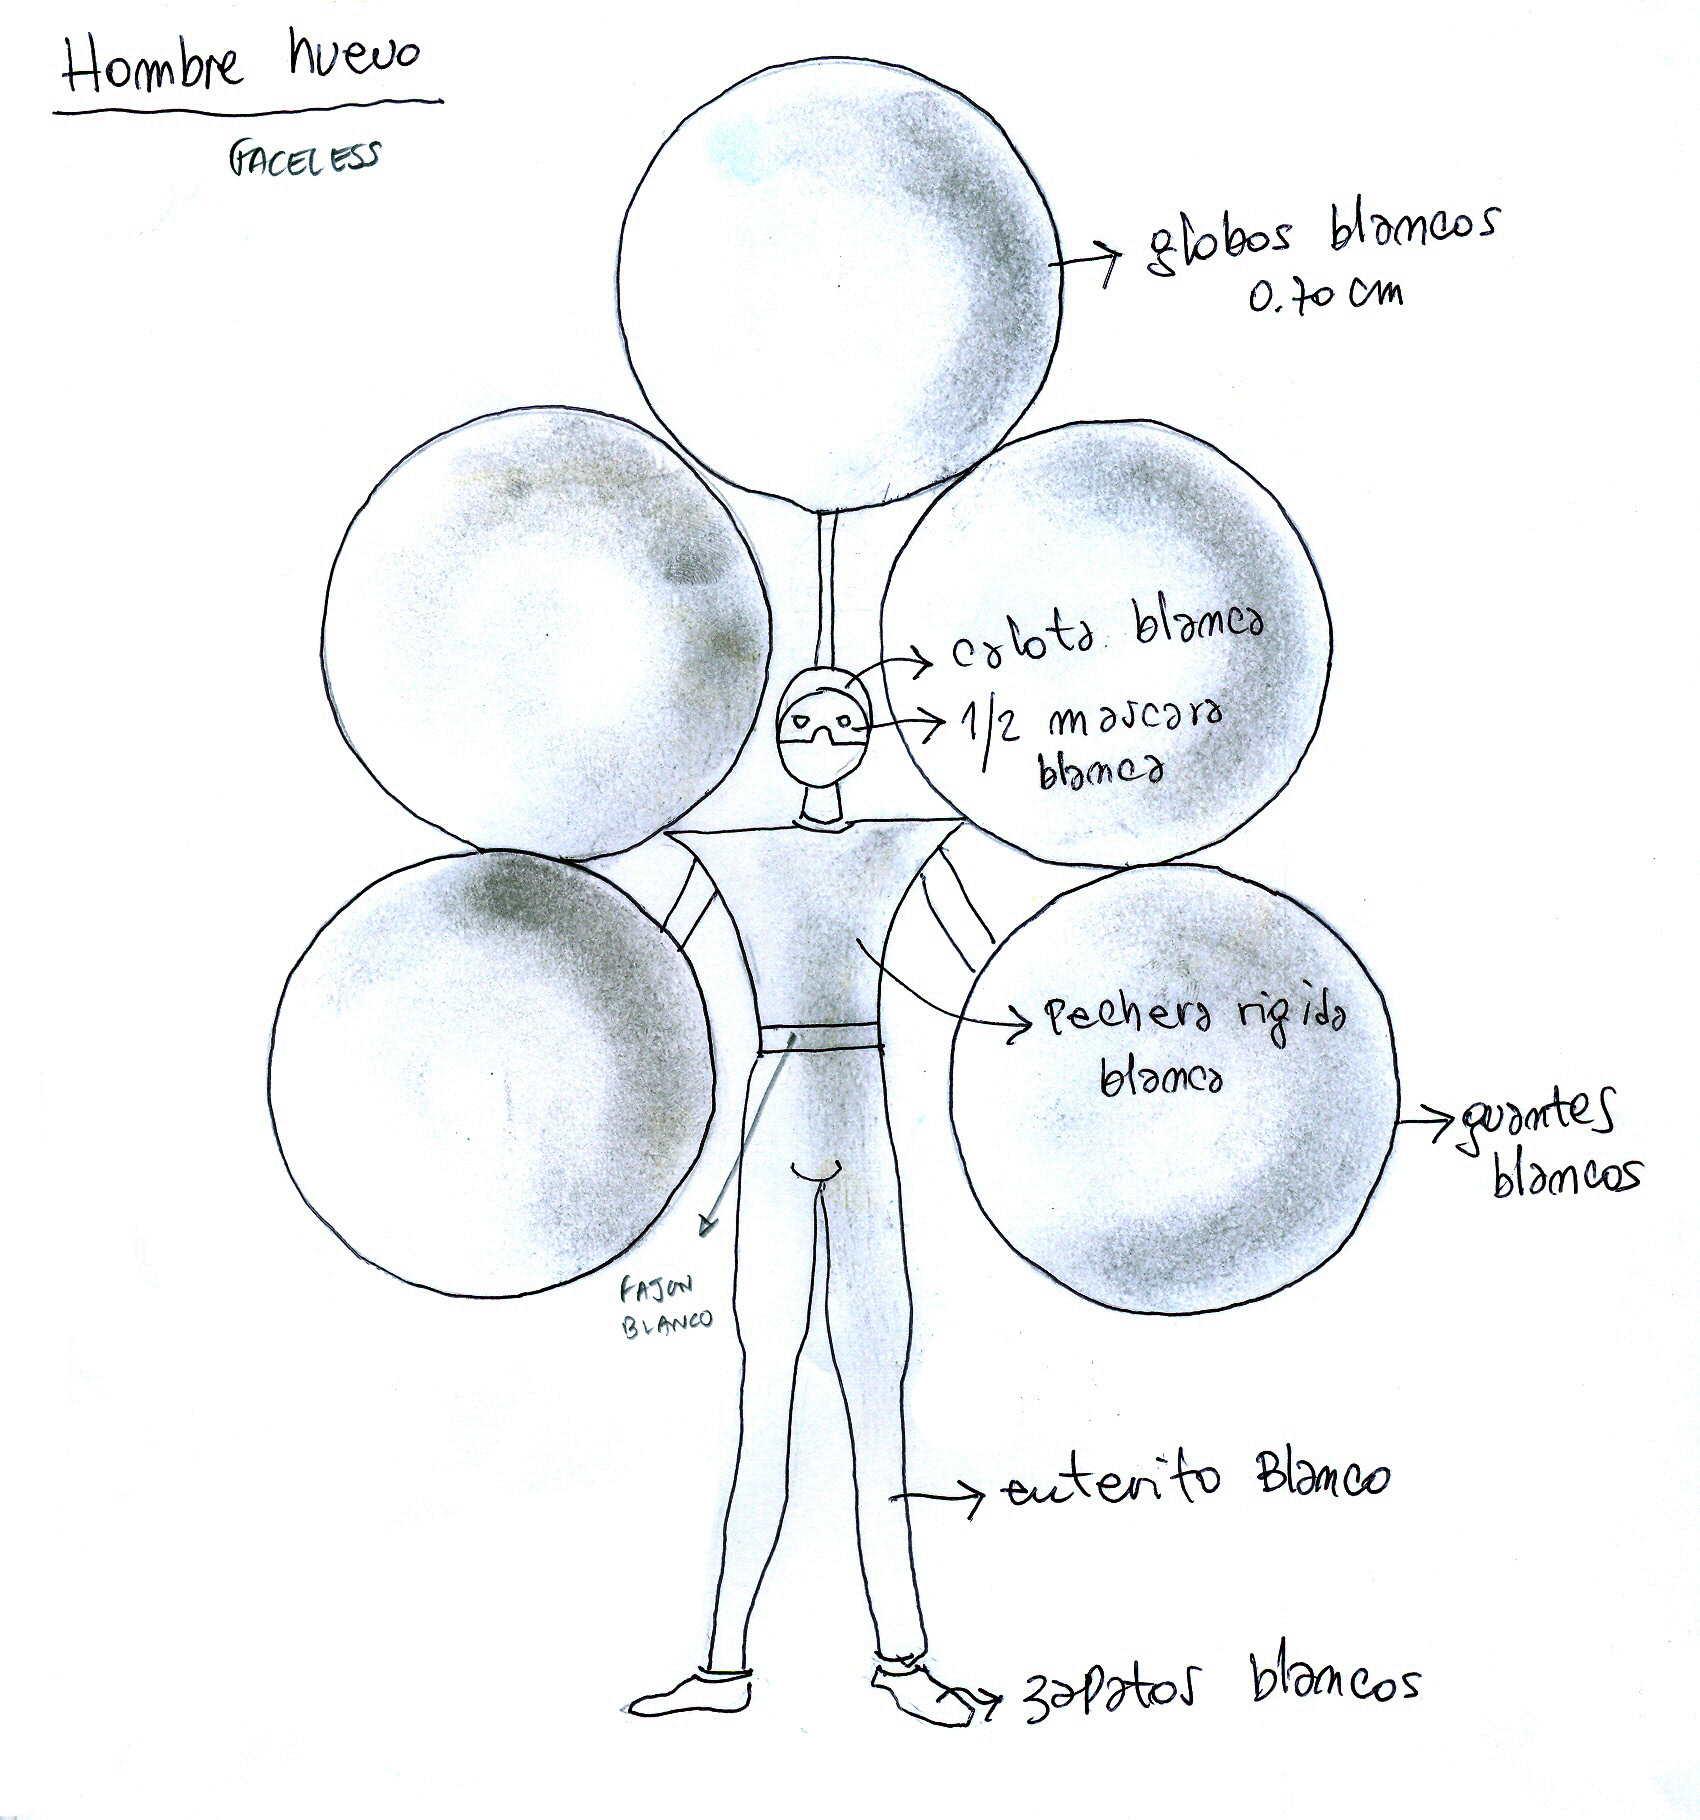 Hombre huevo
FACELESS
globos blancos
0.70 cm
calota blanca
1/2 mascara
blanca
Pechera rigida
blanca
guantes
blancos
FAJON
BLANCO
enterito Blanco
zapatos blancos